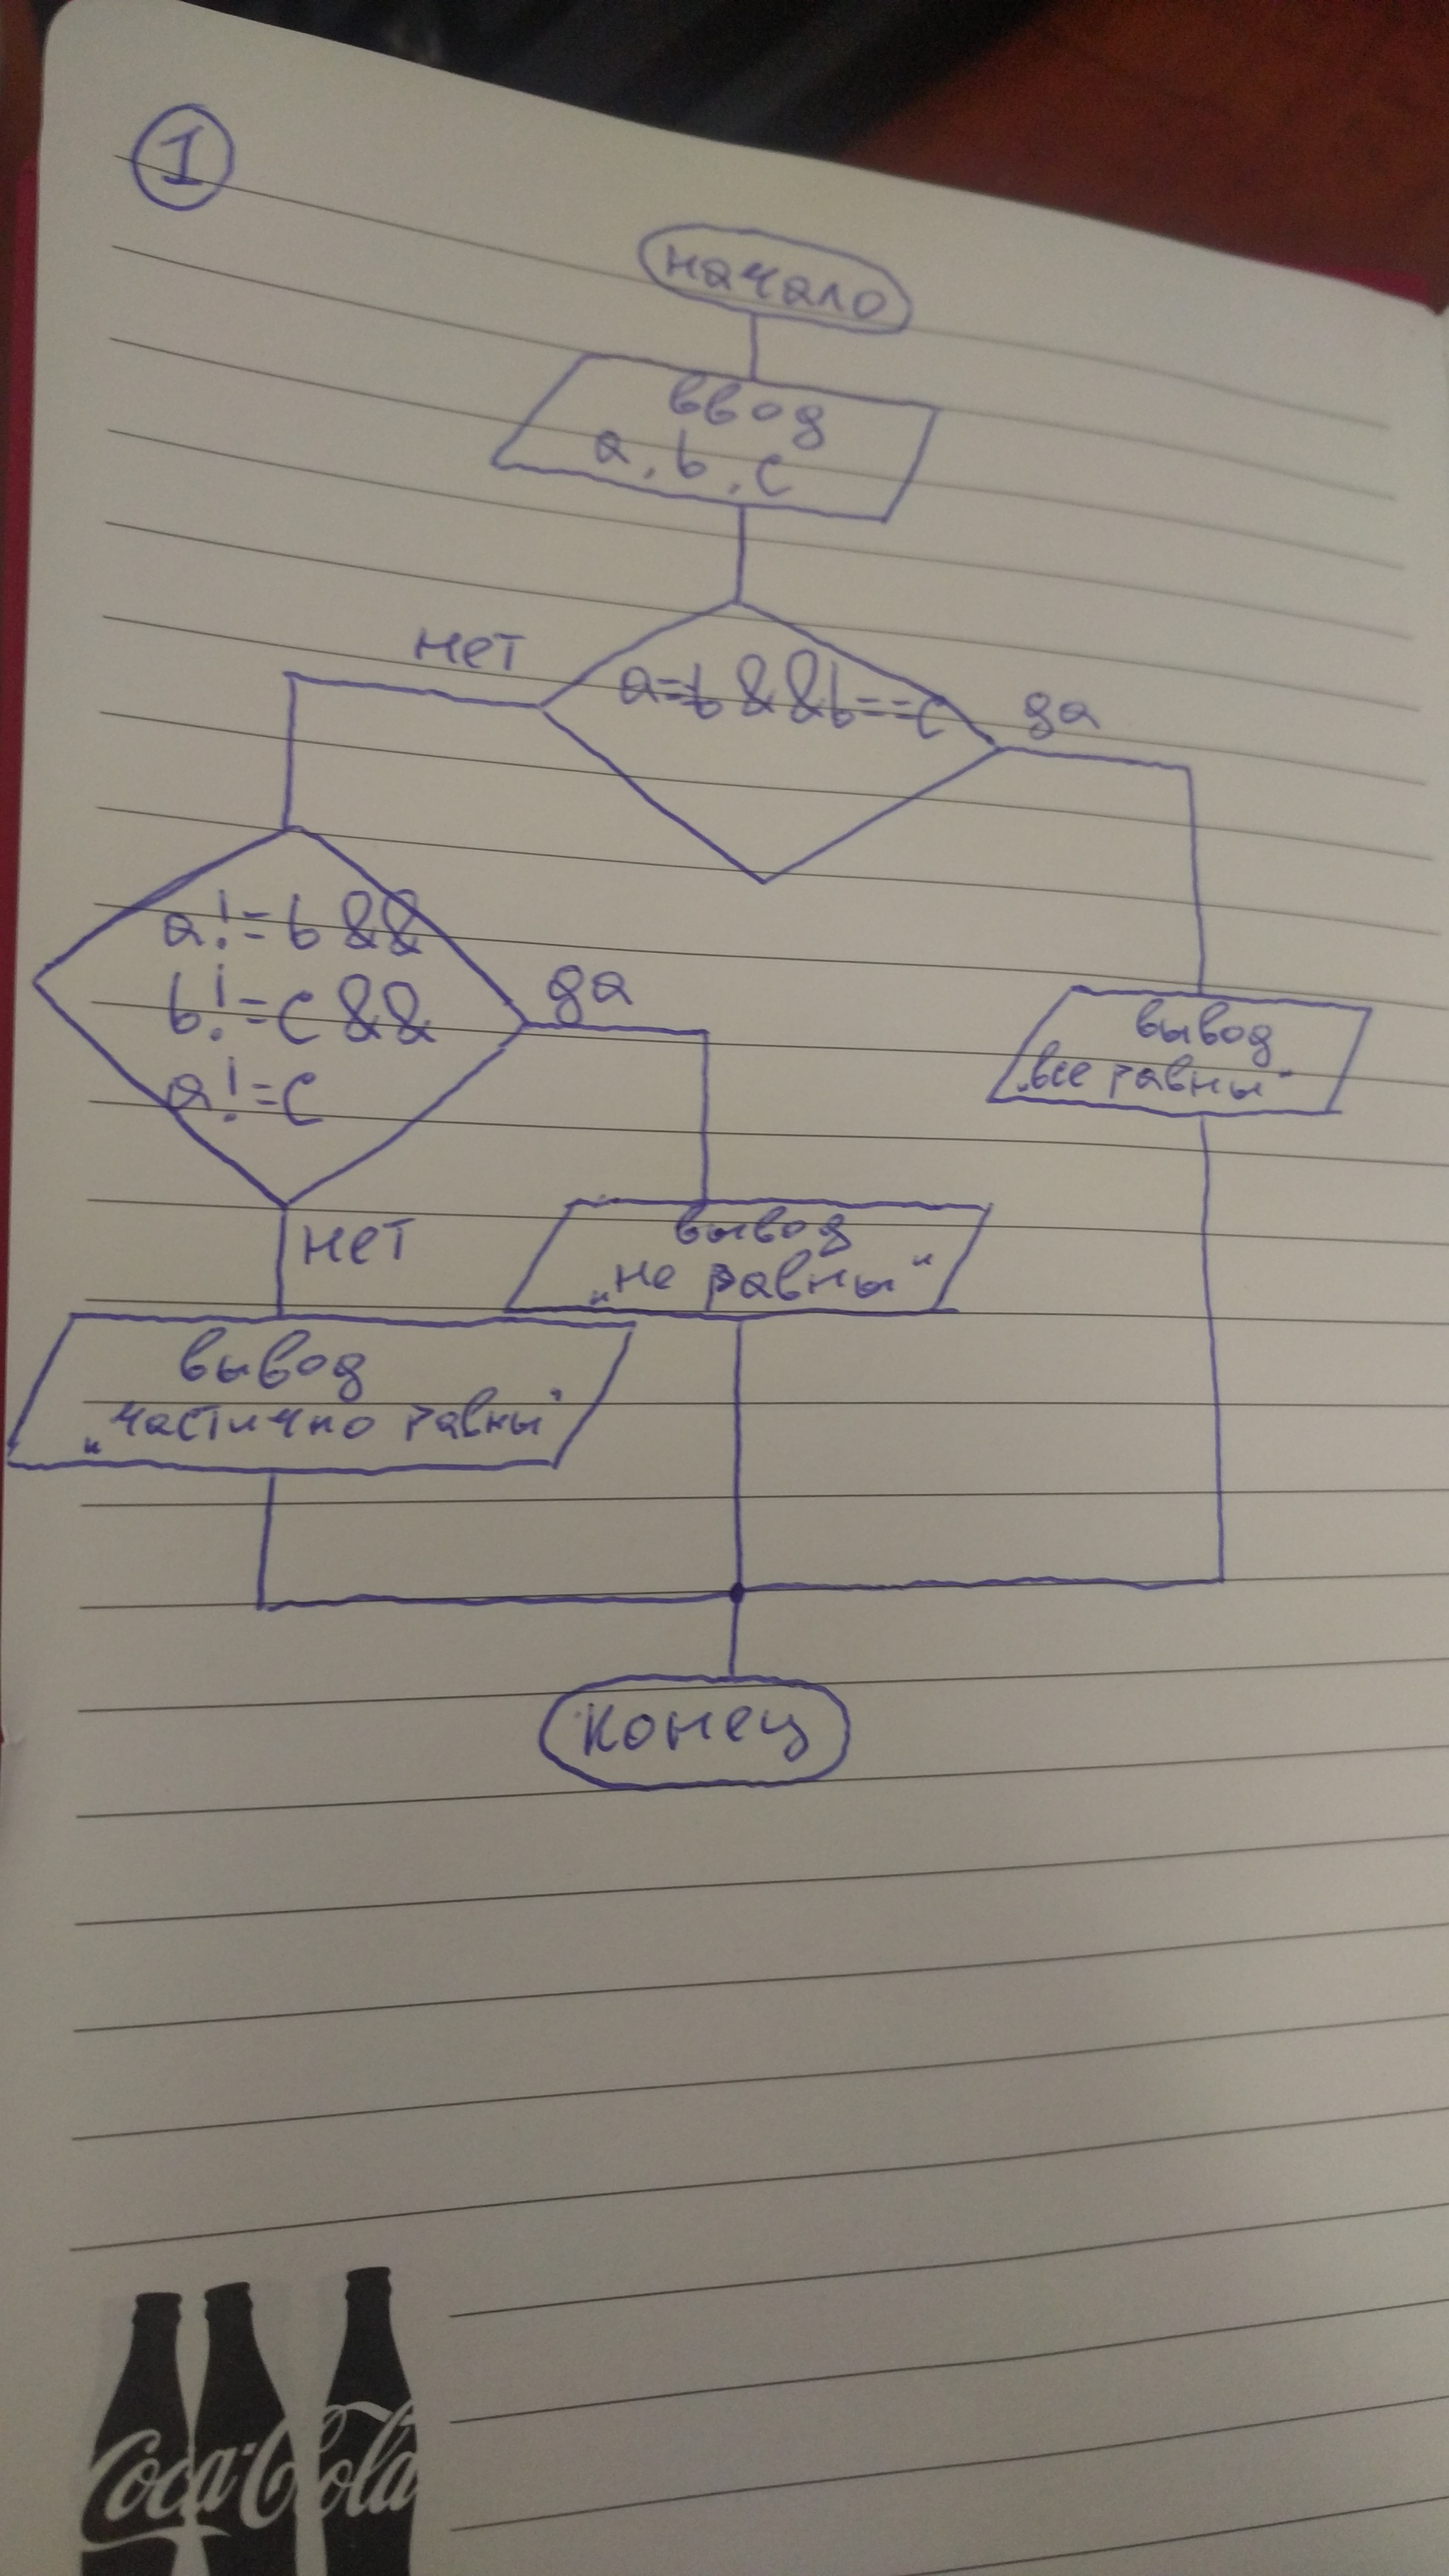 1
начало
ввод
a, b, c
нет
a==b&&b==c
да
a!=b &&
b!=c &&
a!=c
да
вывод
„все равны"
нет
вывод
„не равны"
вывод
„частично равны"
конец
Coca-Cola